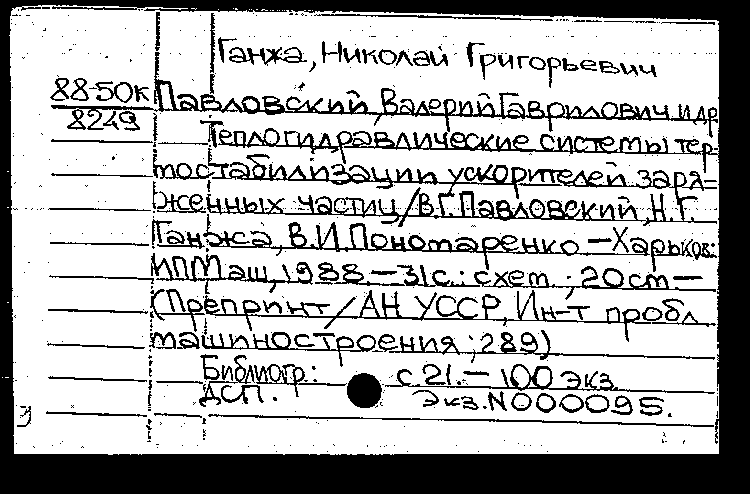 Ганжа, Николай Григорьевич
88-50к
8249
Павловский, Валерий Гаврилович и др
Теплогидравлические системы тер-
мостабилизации ускорителей заря-
женных частиц/В.Г. Павловский, Н.Г.
Ганжа, В.И. Пономаренко — Харьков:
ИПМаш, 1988. — 31 с.: схем.; 20 см —
(Препринт/АН УССР, Ин-т пробл
машиностроения; 289)
Библиогр: с 21. — 100 экз
ДСП. Экз. N000095.